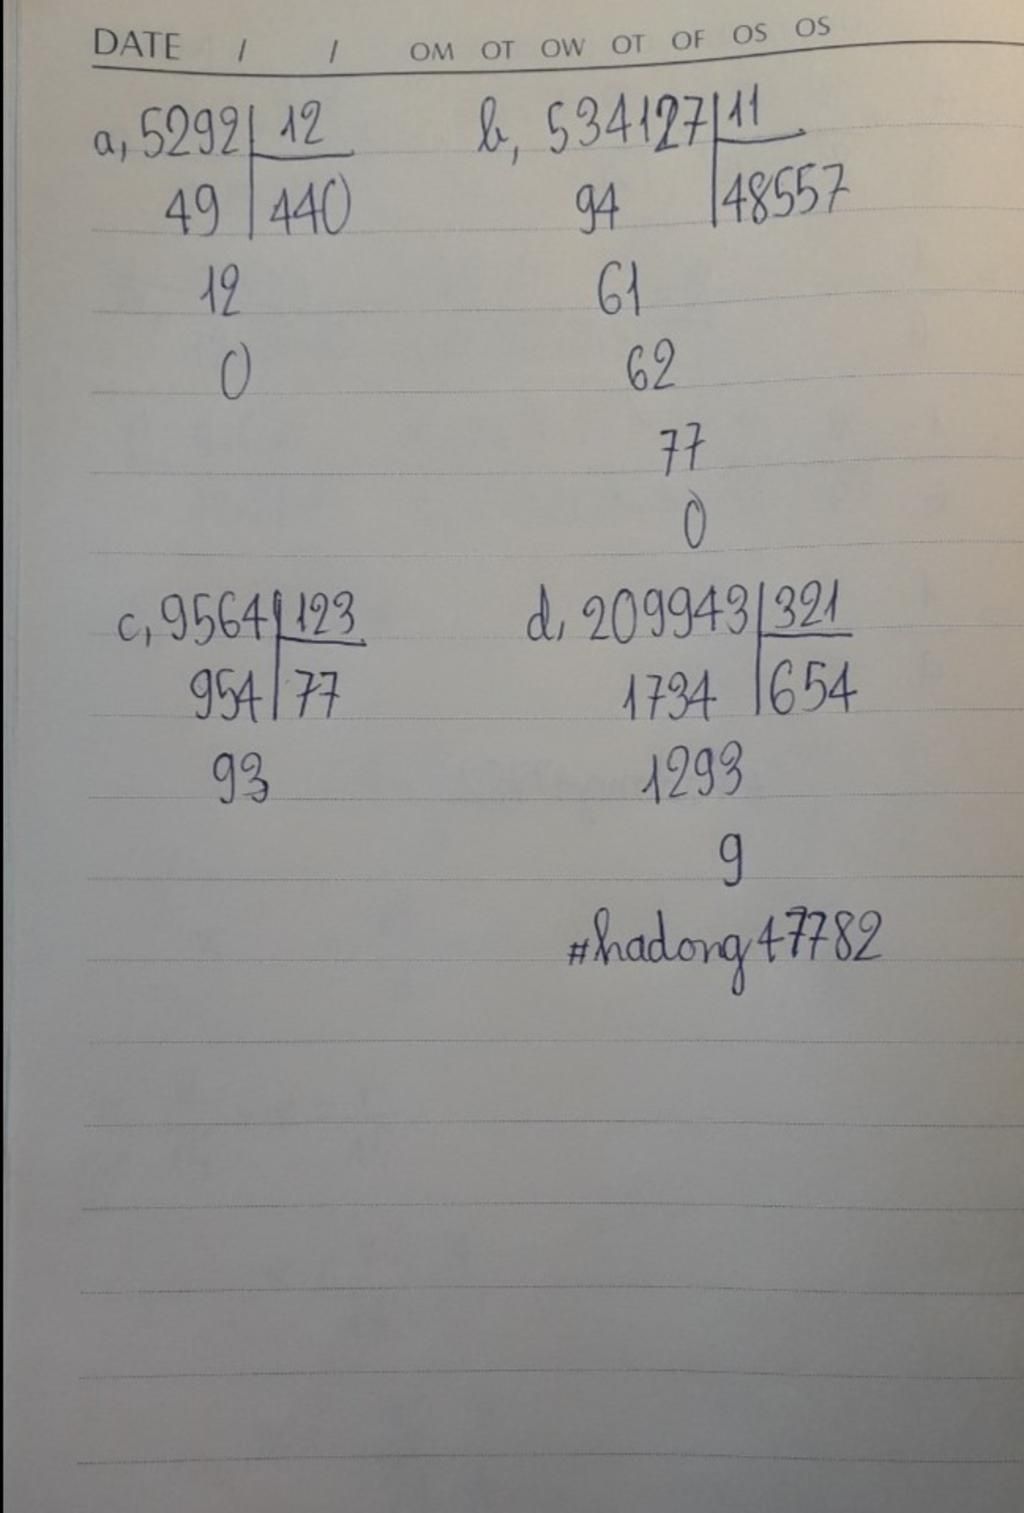 DATE / / OM OT OW OT OF OS OS
a, 5292 | 12
49 | 440
12
0
b, 534127 | 11
94 | 48557
61
62
77
0
c, 9564 | 123
954 | 77
93
d, 209943 | 321
1734 | 654
1293
9
#hadong47782